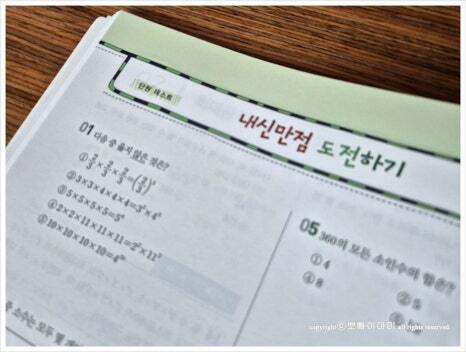 단원 테스트
내신만점 도전하기
01 다음 중 옳지 않은 것은?
① 2/3 × 2/3 × 2/3 = (2/3)³
② 3×3×4×4×4=3²×4³
③ 5×5×5×5=5⁴
④ 2×2×11×11×11=2²×11³
⑤ 10×10×10×10=4¹⁰
05 360의 모든 소인수의 합은?
① 4
② 5
④ 8
copyright ⓒ뽀롸이야미 all rights reserved.